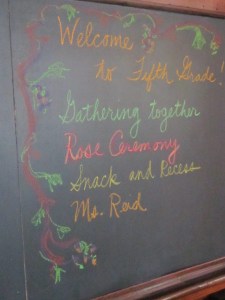 Welcome
to Fifth Grade!
Gathering together
Rose Ceremony
Snack and Recess
Ms. Read